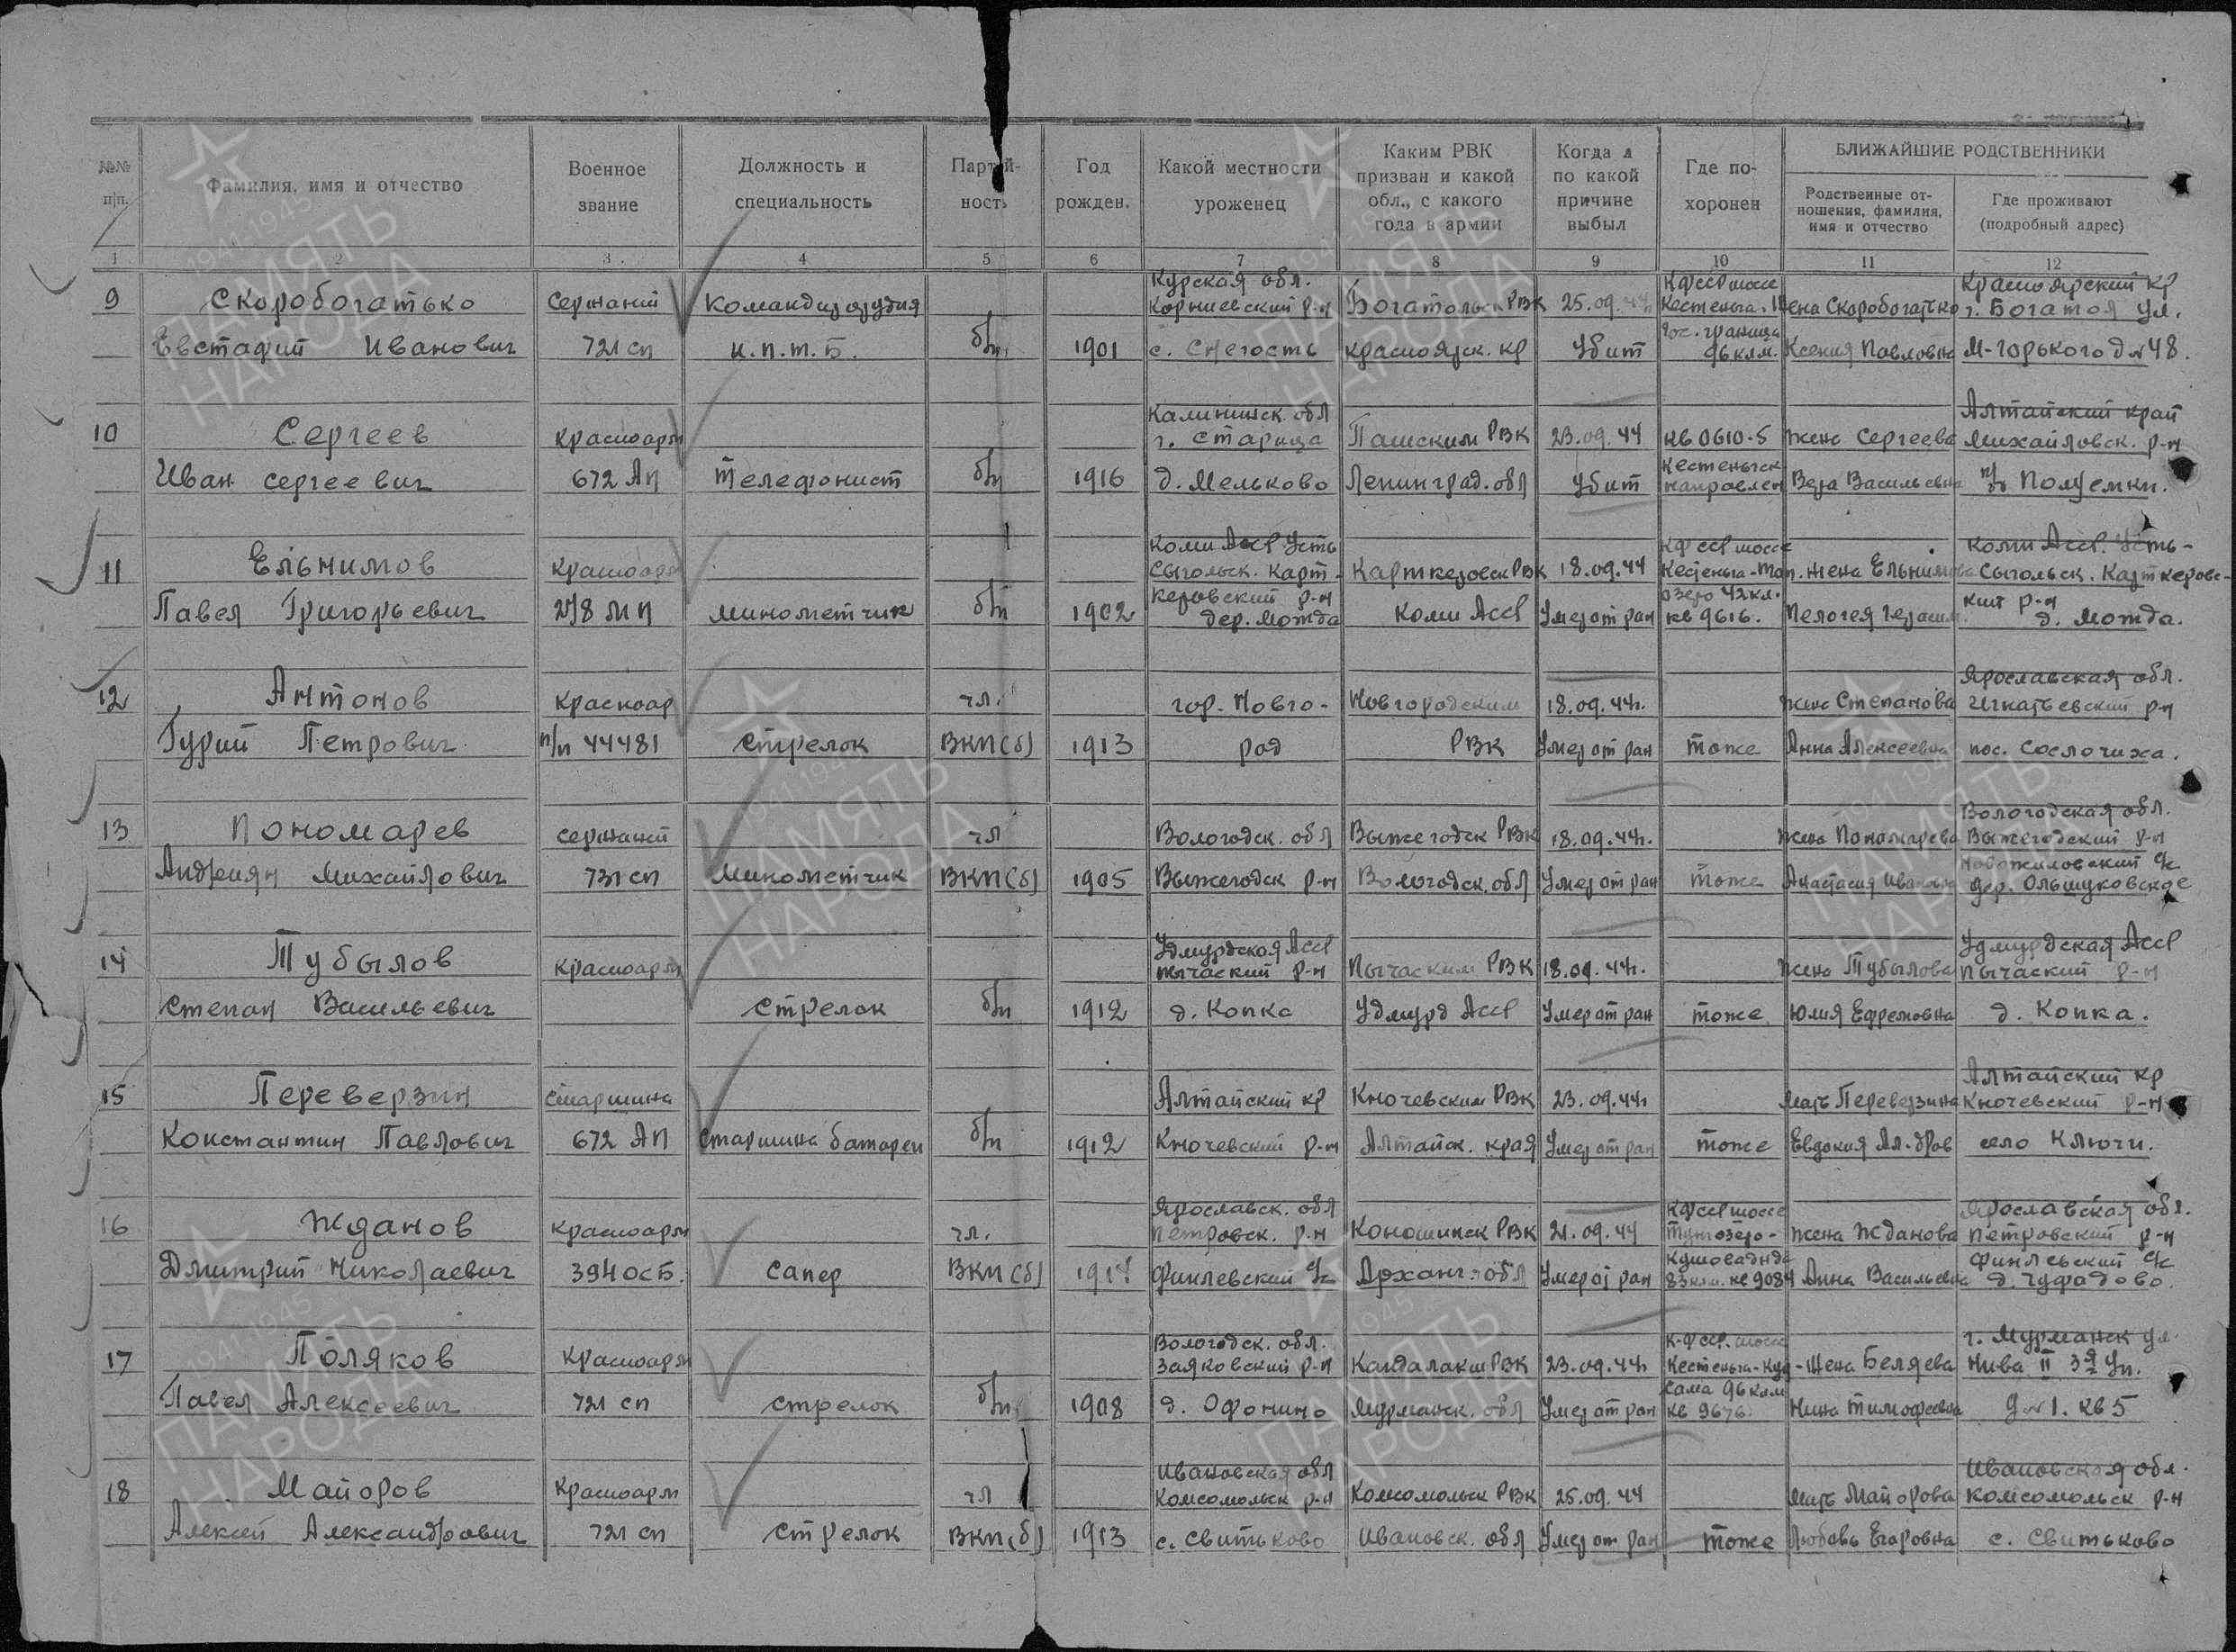 №№ п/п.
Фамилия, имя и отчество
Военное звание
Должность и специальность
Партий- ность
Год рожден.
Какой местности уроженец
Каким РВК призван и какой обл., с какого года в армии
Когда и по какой причине выбыл
Где по- хоронен
БЛИЖАЙШИЕ РОДСТВЕННИКИ
Родственные от- ношения, фамилия, имя и отчество
Где проживают (подробный адрес)
1 2 3 4 5 6 7 8 9 10 11 12
Курская обл. КФССР шоссе Красноярский кр
9 Скоробогатько Сержант Командир орудия Корниевский р-н Богатольск РВК 25.09.44 Кестеньга- Жена Скоробогатько г. Богатоя ул.
гос. граница
Евстафий Иванович 721 сп и.п.т.Б. б/п 1901 с. Снегость Красноярск. кр Убит 96 клм. Ксения Павловна М-Горького д № 48.
Калининск. обл Алтайский край
10 Сергеев Красноарм г. Старица Пашским РВК 23.09.44 кв 0610-5 Жена Сергеева Михайловск. р-н
Кестеньгск
Иван Сергеевич 672 АП Телефонист б/п 1916 д. Мельково Ленинград. обл Убит направлен Вера Васильевна Полуемки.
Коми Асср Усть КФССР шоссе Коми Асср. Усть-
11 Ельнимов Красноарм Сысольск. Карт- Карткеровск РВК 18.09.44 Кестеньга-Топ. Жена Ельнимова Сысольск. Карткеров-
керовский р-н озеро 42 кл. кий р-н
Павел Григорьевич 278 МП минометчик б/п 1902 дер. Можда Коми Асср Умер от ран кв 9616. Пелогея Герасим. д. Можда.
Ярославская обл.
12 Антонов Красноар чл. гор. Новго- Новгородским 18.09.44г. Жена Степанова р-н
Гурий Петрович п/п 44481 Стрелок ВКП(б) 1913 род РВК Умер от ран тоже Анна Алексеевна пос. Сослочиха.
Вологодская обл.
13 Пономарев сержант чл Вологодск. обл Выжегодск РВК 18.09.44г. Жена Пономарева Выжегодский р-н
Новожиловский с/с
Андриян Михайлович 731 сп Минометчик ВКП(б) 1905 Выжегодск р-н Вологодск. обл Умер от ран тоже Анастасия Ивановна дер. Ольшуковское
Удмурдская Асср Удмурдская Асср
14 Тубылов Красноарм Пычаский р-н Пычаским РВК 18.09.44г. Жена Тубылова Пычаский р-н
Степан Васильевич Стрелок б/п 1912 д. Копка Удмурд Асср Умер от ран тоже Юлия Ефремовна д. Копка.
Алтайский кр
15 Переверзин Старшина Алтайский кр Ключевским РВК 23.09.44г Мать Переверзина Ключевский р-н
Константин Павлович 672 АП Старшина батареи б/п 1912 Ключевский р-н Алтайск. края Умер от ран тоже Евдокия Ал-дров село Ключи.
Ярославск. обл КФССР шоссе Ярославская обл.
16 Жданов Красноарм чл. Петровск. р-н Коношинск РВК 21.09.44 Тунгозеро- Жена Жданова Петровский р-н
Кушевандда Финлевский с/с
Дмитрий Николаевич 394 осб. Сапер ВКП(б) 1914 Финлевский с/с Арханг. обл Умер от ран 83 клм. кв 9084 Анна Васильевна д. Чуфадово.
Вологодск. обл. К-Фсср. шоссе г. Мурманск ул.
17 Поляков Красноарм Заяковский р-н Кандалакш РВК 23.09.44г Кестеньга-Кун- Жена Беляева Нива II 3й Уч.
сама 96 клм
Павел Алексеевич 721 сп стрелок б/п 1908 д. Офонино Мурманск. обл Умер от ран кв 9676. Нина Тимофеевна д № 1. кв 5
Ивановская обл Ивановская обл.
18 Майоров Красноарм чл Комсомольск р-н Комсомольск РВК 25.09.44 Мать Майорова Комсомольск р-н
Алексей Александрович 721 сп Стрелок ВКП(б) 1913 с. Свитьково Ивановск. обл Умер от ран тоже Любовь Егоровна с. Свитьково
1941-1945
ПАМЯТЬ
НАРОДА